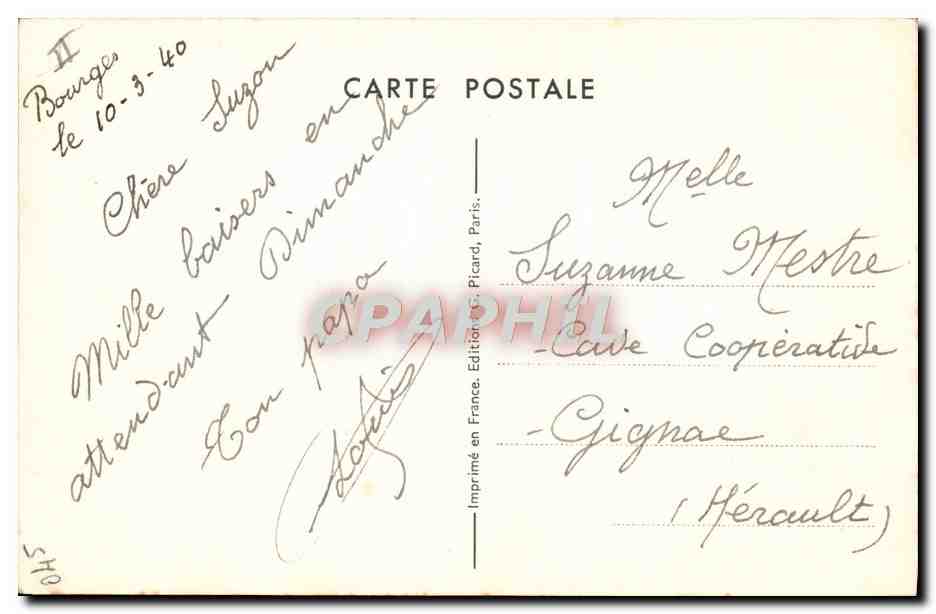 II
Bourges
le 10-3-40
CARTE POSTALE
Chère Suzon
Mille baisers en
attendant Dimanche
Ton papa
Imprimé en France. Editions G. Picard, Paris.
Melle
Suzanne Mestre
- Cave Coopérative
- Gignac
(Hérault)
CPAPHIL
540